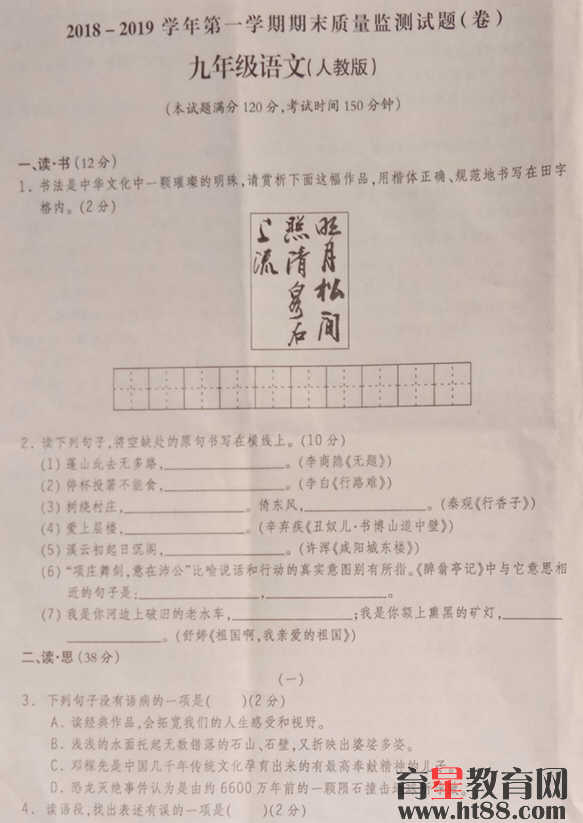 2018-2019 学年第一学期期末质量监测试题(卷)
九年级语文(人教版)
(本试题满分120分,考试时间150分钟)
一、读·书(12分)
1. 书法是中华文化中一颗璀璨的明珠,请赏析下面这幅作品,用楷体正确、规范地书写在田字
格内。(2分)
明月松间
照清泉石
上流
2. 读下列句子,将空缺处的原句书写在横线上。(10分)
(1)蓬山此去无多路,____________。(李商隐《无题》)
(2)停杯投箸不能食,____________。(李白《行路难》)
(3)树绕村庄,____________。倚东风,____________。(秦观《行香子》)
(4)爱上层楼,____________。(辛弃疾《丑奴儿·书博山道中壁》)
(5)溪云初起日沉阁,____________。(许浑《咸阳城东楼》)
(6)“项庄舞剑,意在沛公”比喻说话和行动的真实意图别有所指。《醉翁亭记》中与它意思相
近的句子是:____________,____________。
(7)我是你河边上破旧的老水车,____________;我是你额上熏黑的矿灯,______
____________。(舒婷《祖国啊,我亲爱的祖国》)
二、读·思(38分)
(一)
3. 下列句子没有语病的一项是( )(2分)
A. 读经典作品,会拓宽我们的人生感受和视野。
B. 浅浅的水面托起无数错落的石山、石壁,又折映出婆娑多姿。
C. 邓稼先是中国几千年传统文化孕育出来的有最高奉献精神的儿子。
D. 恐龙灭绝事件认为是由约6600万年前的一颗陨石撞击地
4. 读语段,找出表述有误的一项是( )(2分)
育星教育网
www.ht88.com